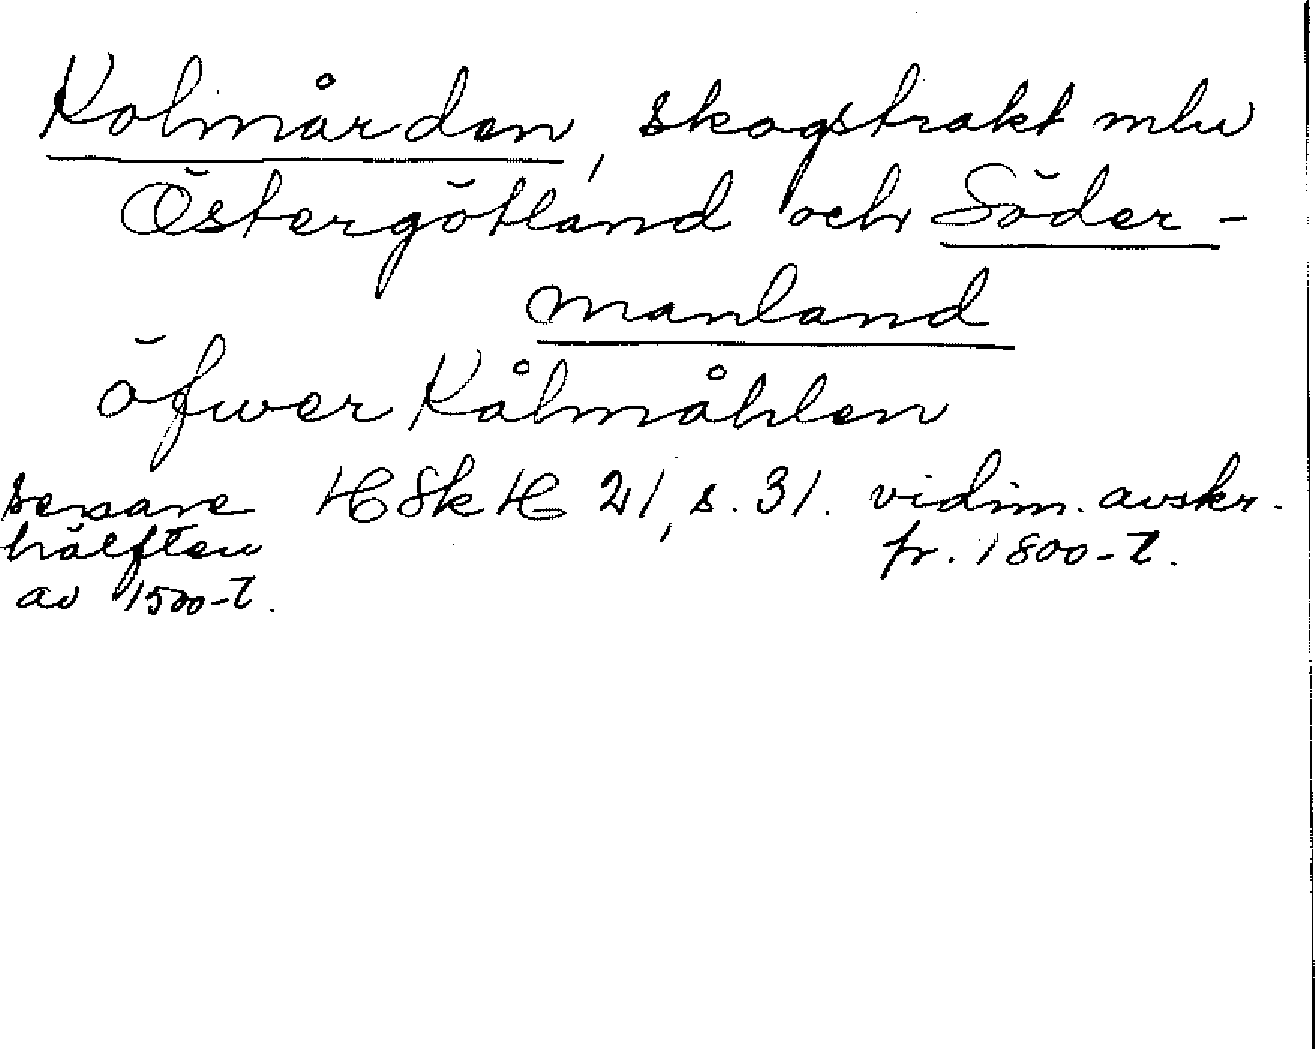 Kolmården, skogstrakt mln
Östergötland och Söder-
manland
öfwer Kålmåhlen
senare HSkH 21, s. 31. vidim. avskr.
hälften fr. 1800-t.
av 1500-t.